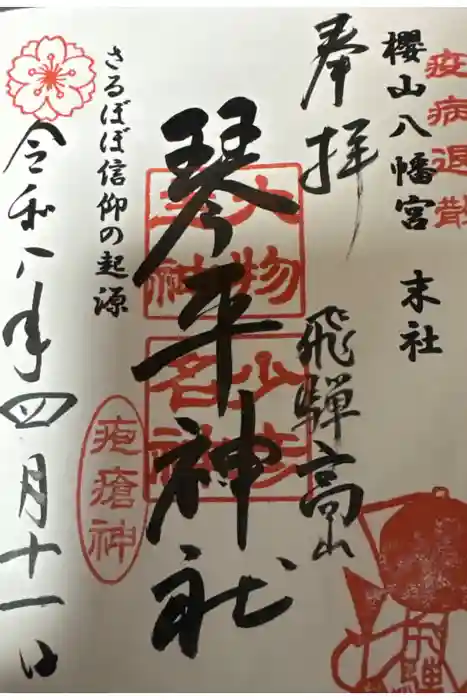 疫病退散
櫻山八幡宮 末社
奉拝
飛騨高山
大物主神
少彦名神
琴平神社
疱瘡神
さるぼぼ信仰の起源
令和八年四月十一日